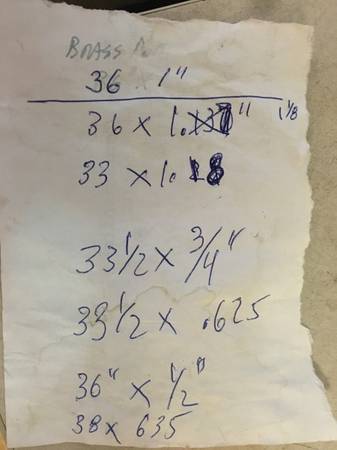 BRASS
36 1"
36 x 1. " 1 1/8
33 x 1.18
33 1/2 x 3/4"
33 1/2 x .625
36" x 1/2"
38 x 635